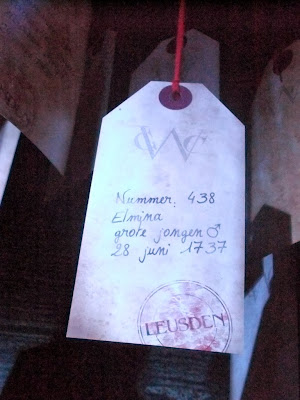 WC
Nummer. 438
Elmina
grote jongen ♂
28 juni 1737
LEUSDEN